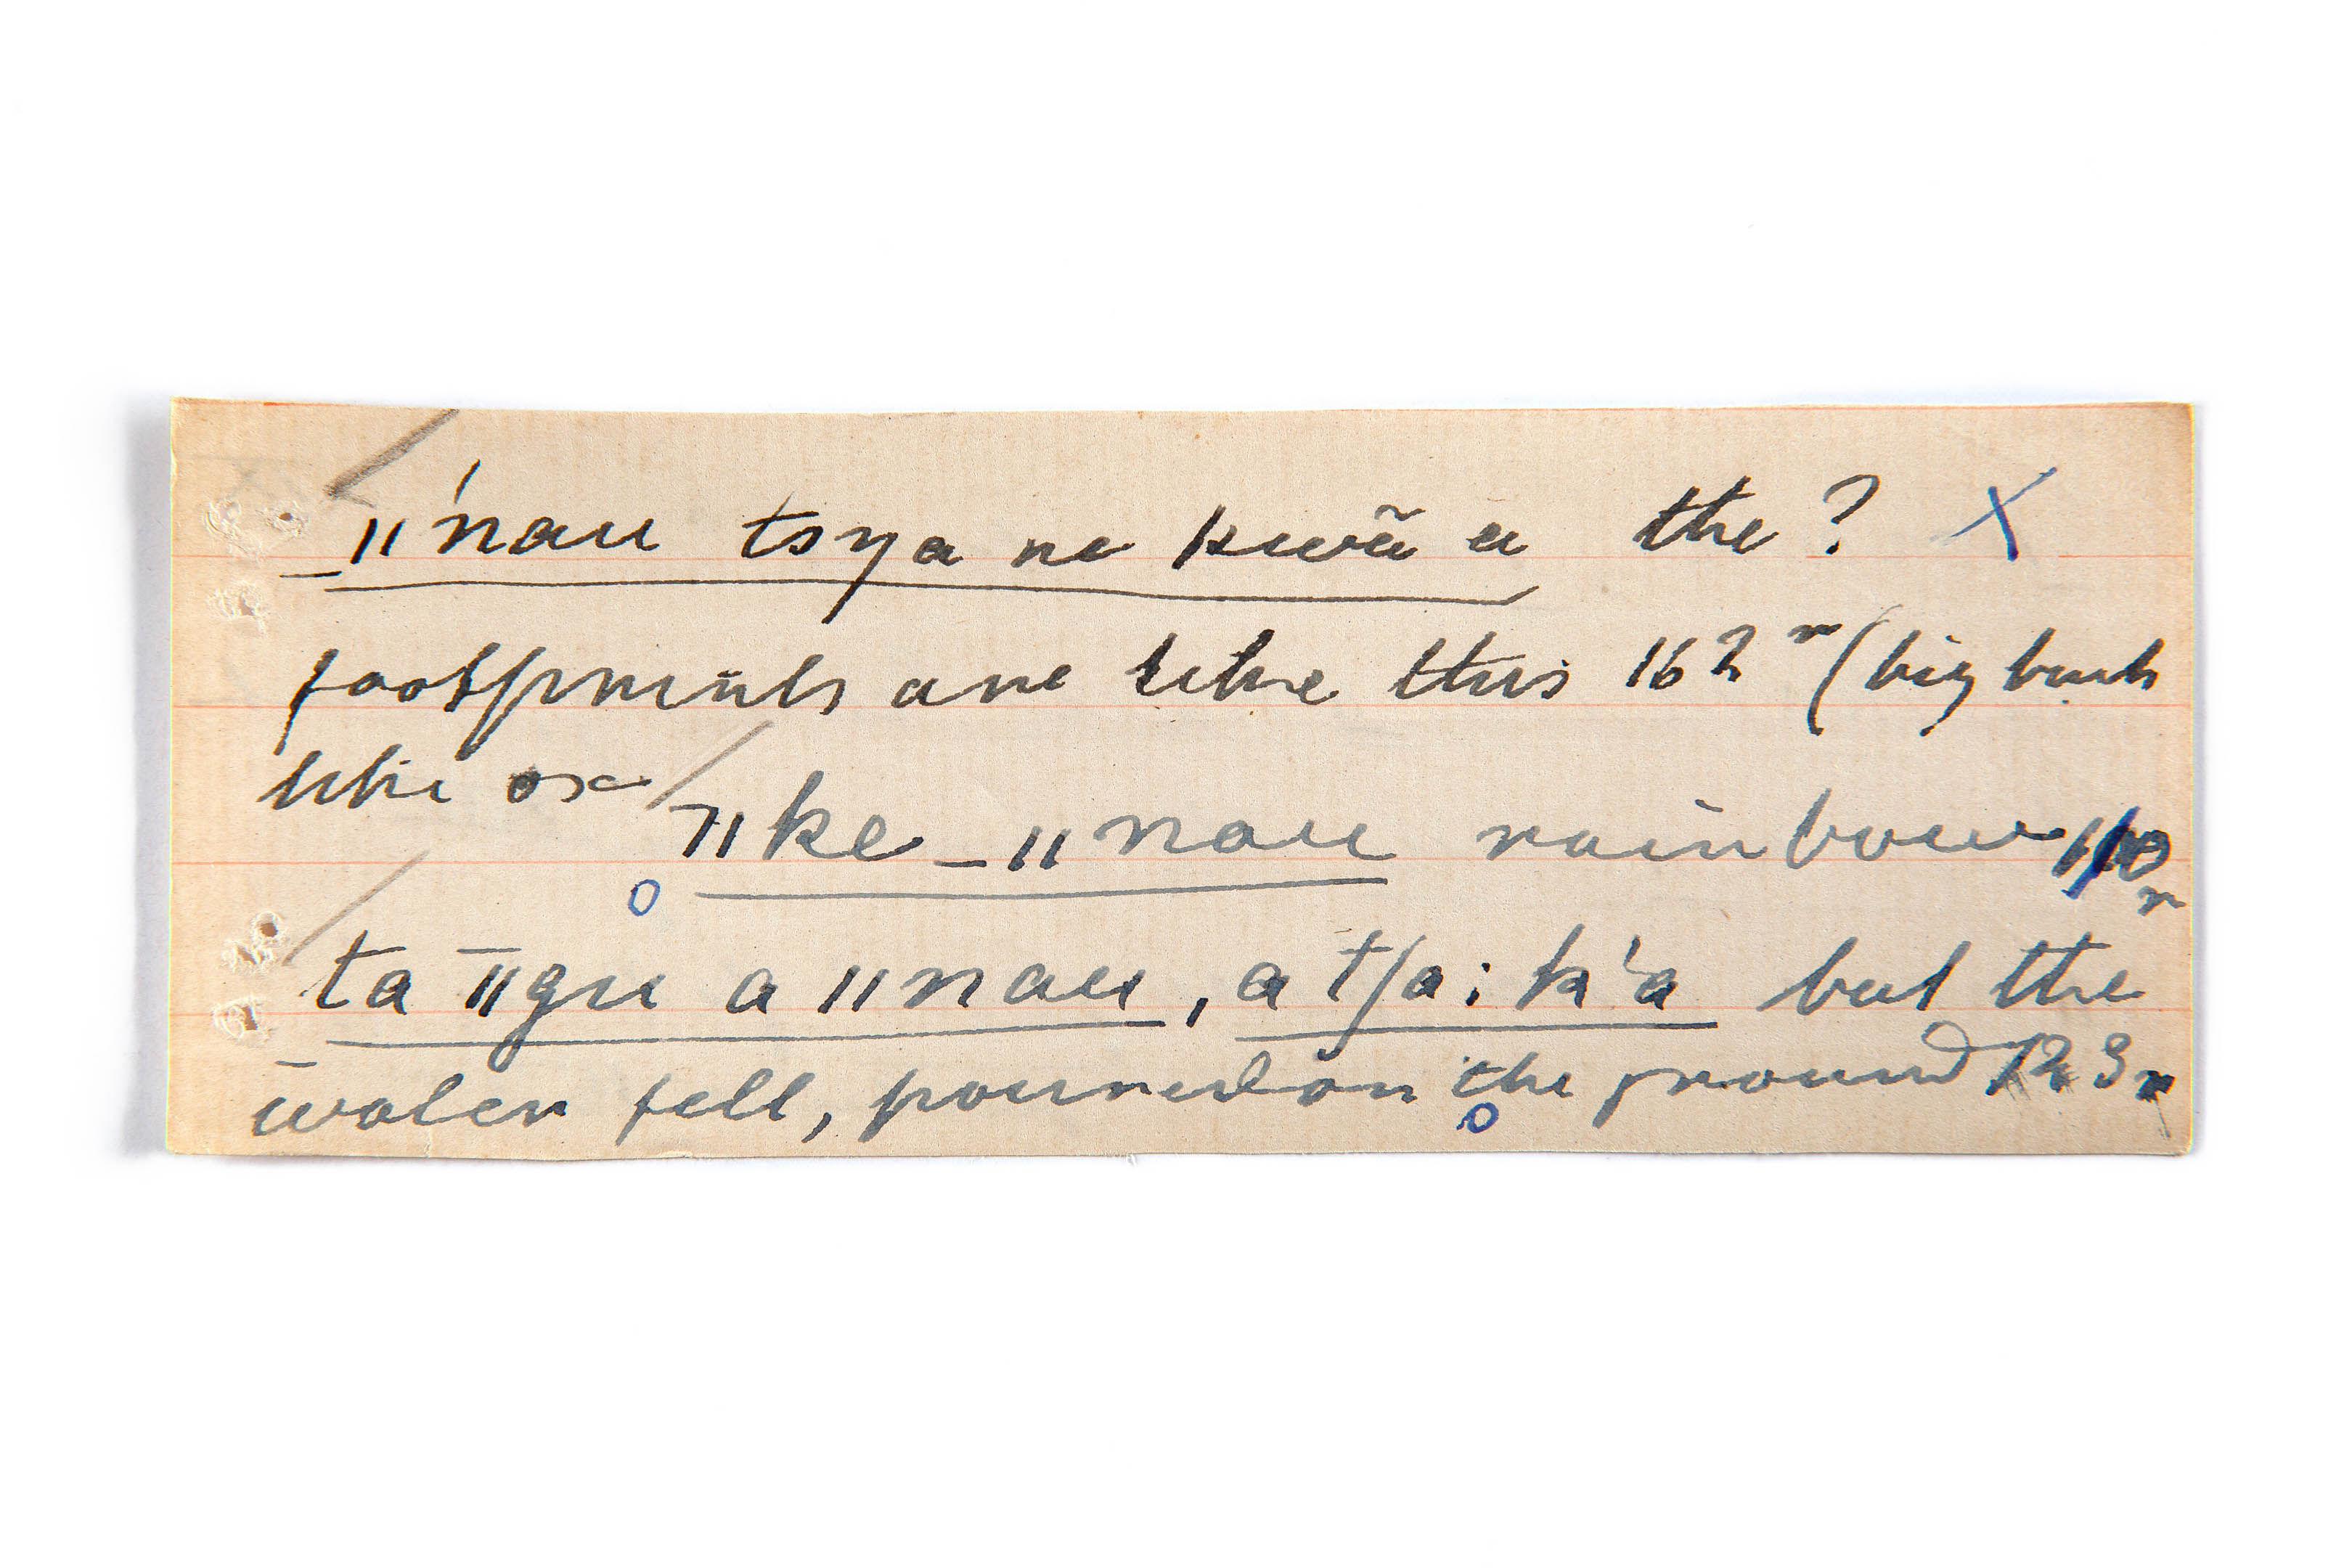 _ǁ'nau tsya ne kwã u the? X
footprints are like this 162 r (big buck
like ox / ¬ǁke _ǁnau rainbow
ta ¯ǁgu a ǁnau, a tʃa: k'a but the
water fell, poured on the ground 123 r